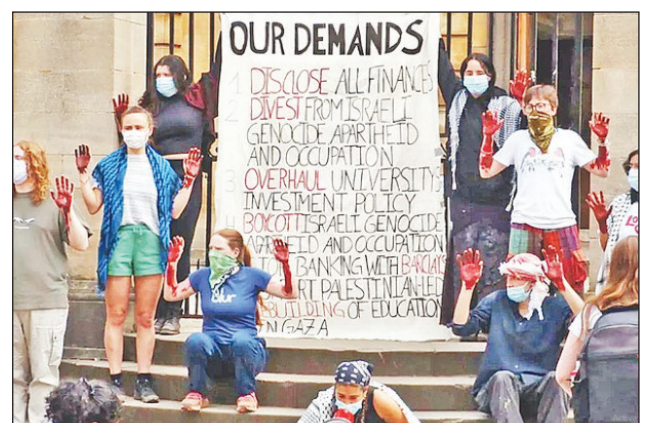 OUR DEMANDS
1 DISCLOSE ALL FINANCES
2 DIVEST FROM ISRAELI
GENOCIDE APARTHEID
AND OCCUPATION
3 OVERHAUL UNIVERSITY
INVESTMENT POLICY
4 BOYCOTT ISRAELI GENOCIDE
AND OCCUPATION
BANKING WITH BARCLAYS
PALESTINIAN-LED
BUILDING OF EDUCATION
IN GAZA
blur